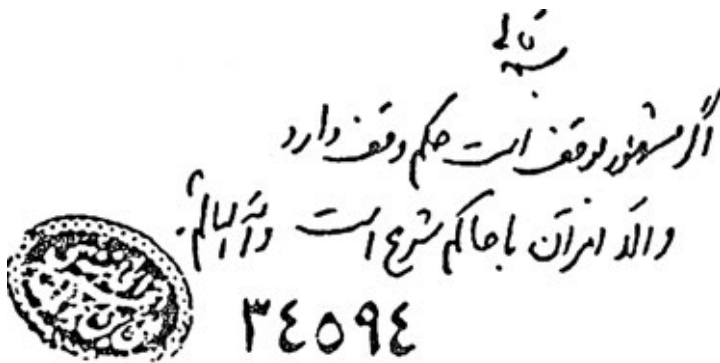 بسمه تعالی
اگر مشهور بوقف است حکم وقف دارد
و الا امر آن با حاکم شرع است والله العالم
٣٤٥٩٤